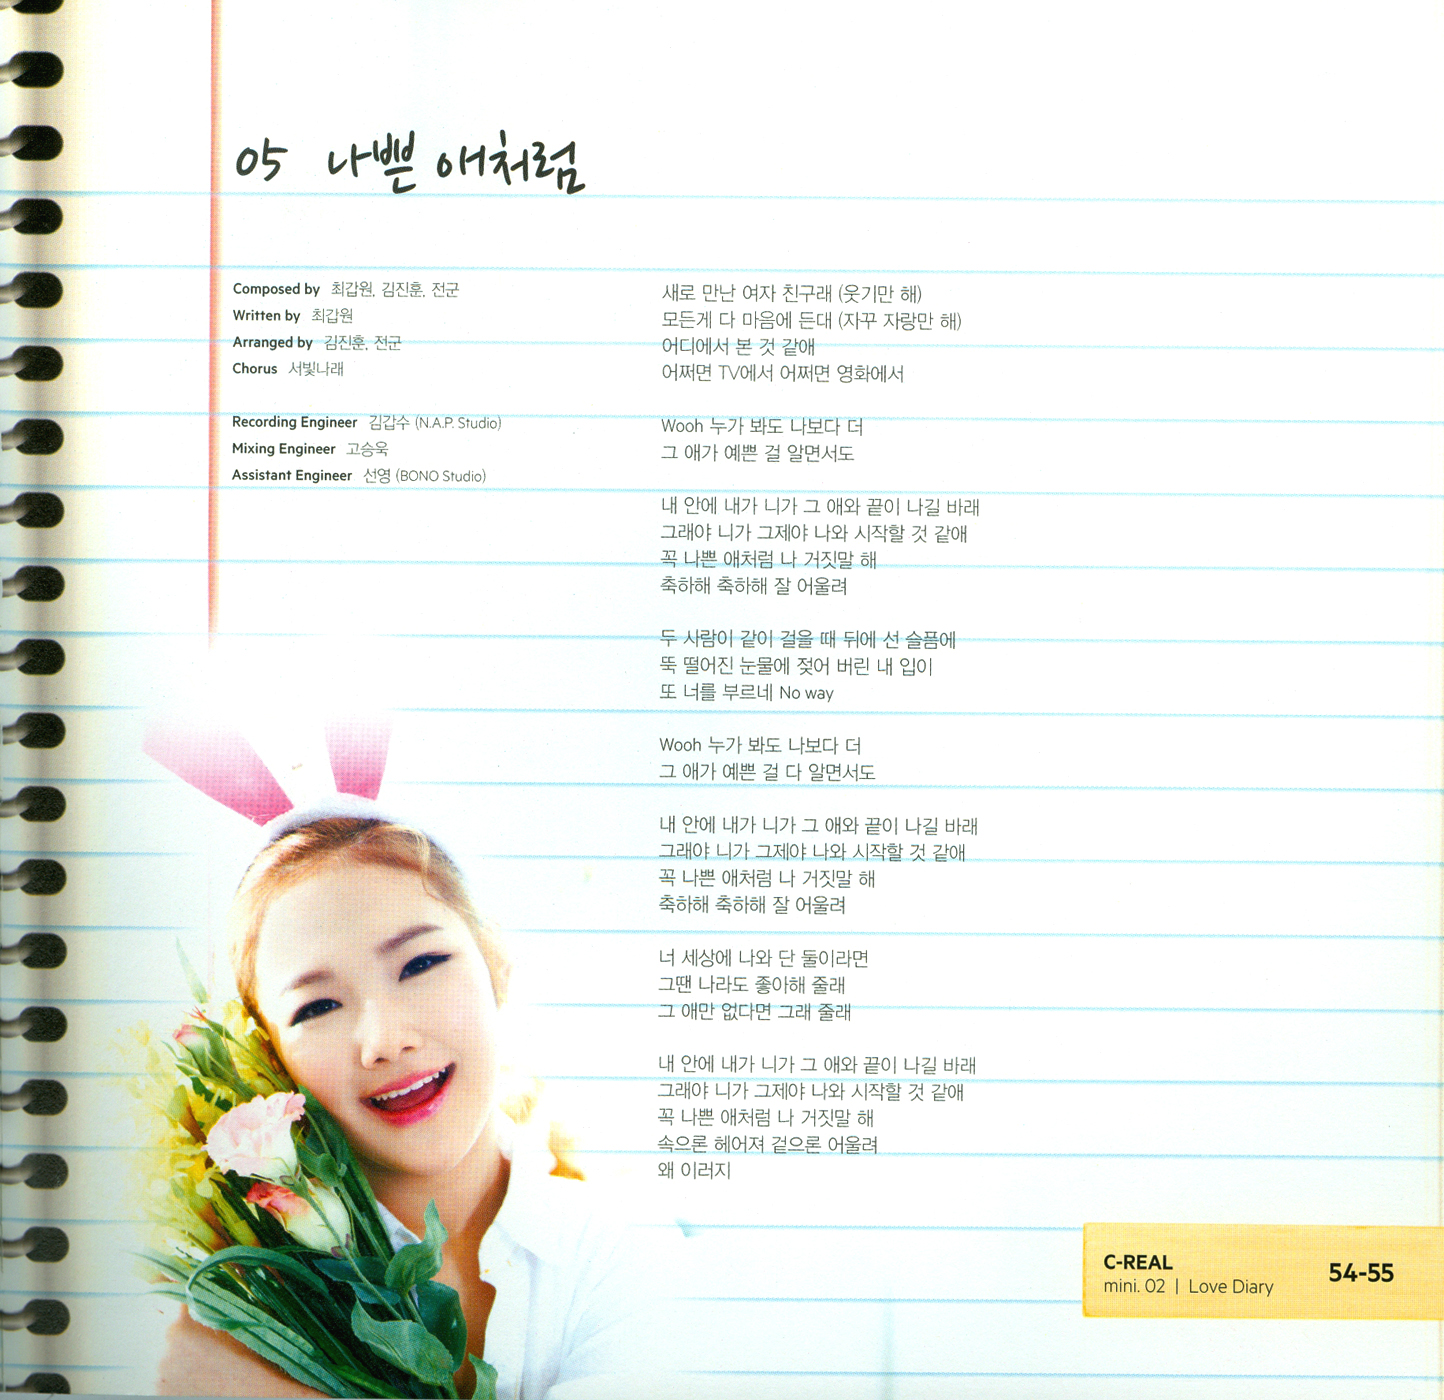 05 나쁜 애처럼
Composed by 최갑원, 김진훈, 전군
Written by 최갑원
Arranged by 김진훈, 전군
Chorus 서빛나래
Recording Engineer 김갑수 (N.A.P. Studio)
Mixing Engineer 고승욱
Assistant Engineer 선영 (BONO Studio)
새로 만난 여자 친구래 (웃기만 해)
모든게 다 마음에 든대 (자꾸 자랑만 해)
어디에서 본 것 같애
어쩌면 TV에서 어쩌면 영화에서
Wooh 누가 봐도 나보다 더
그 애가 예쁜 걸 알면서도
내 안에 내가 니가 그 애와 끝이 나길 바래
그래야 니가 그제야 나와 시작할 것 같애
꼭 나쁜 애처럼 나 거짓말 해
축하해 축하해 잘 어울려
두 사람이 같이 걸을 때 뒤에 선 슬픔에
뚝 떨어진 눈물에 젖어 버린 내 입이
또 너를 부르네 No way
Wooh 누가 봐도 나보다 더
그 애가 예쁜 걸 다 알면서도
내 안에 내가 니가 그 애와 끝이 나길 바래
그래야 니가 그제야 나와 시작할 것 같애
꼭 나쁜 애처럼 나 거짓말 해
축하해 축하해 잘 어울려
너 세상에 나와 단 둘이라면
그땐 나라도 좋아해 줄래
그 애만 없다면 그래 줄래
내 안에 내가 니가 그 애와 끝이 나길 바래
그래야 니가 그제야 나와 시작할 것 같애
꼭 나쁜 애처럼 나 거짓말 해
속으론 헤어져 겉으론 어울려
왜 이러지
C-REAL
mini. 02 | Love Diary
54-55